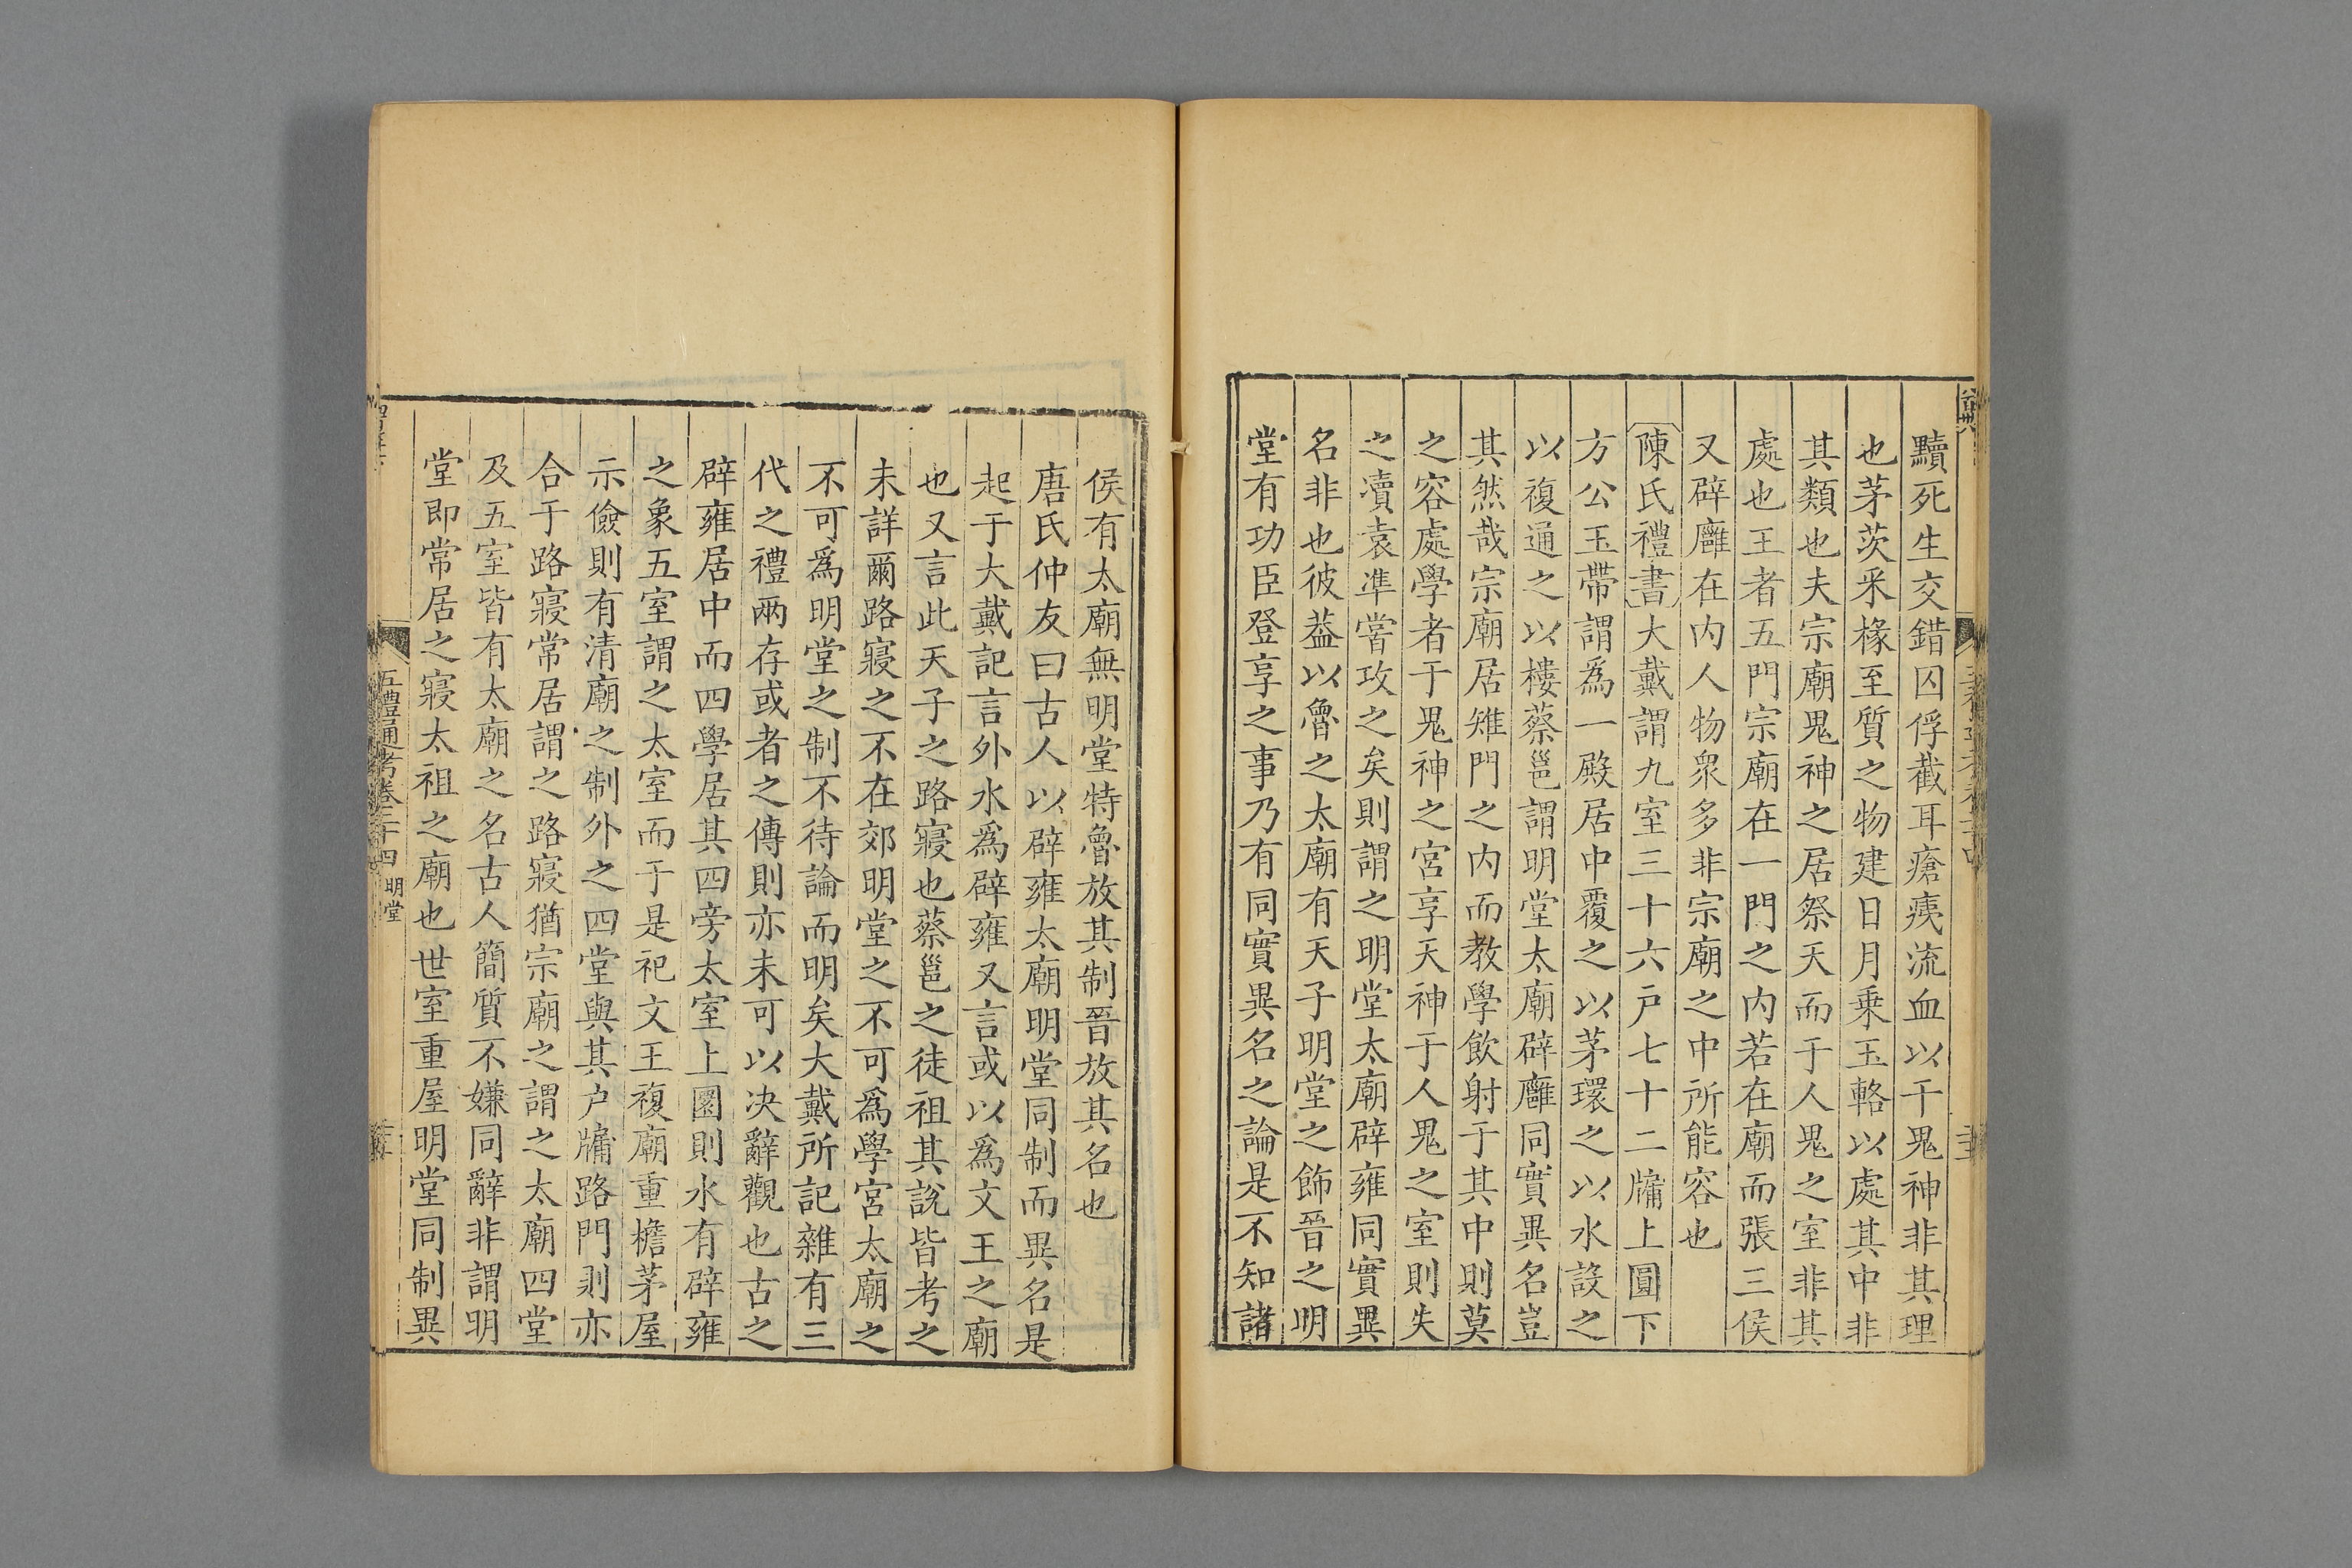 黷死生交錯囚俘截耳瘡痍流血以干鬼神非其理
也茅茨采椽至質之物建日月乗玉輅以處其中非
其類也夫宗廟鬼神之居祭天而于人鬼之室非其
處也王者五門宗廟在一門之内若在廟而張三侯
又辟廱在内人物衆多非宗廟之中所能容也
陳氏禮書大戴謂九室三十六戸七十二牖上圓下
方公玉帶謂為一殿居中覆之以茅環之以水設之
以複通之以樓蔡邕謂明堂太廟辟廱同實異名豈
其然哉宗廟居雉門之内而教學飲射于其中則莫
之容處學者于鬼神之宮享天神于人鬼之室則失
之瀆袁準嘗攻之矣則謂之明堂太廟辟雍同實異
名非也彼葢以魯之太廟有天子明堂之飾晉之明
堂有功臣登享之事乃有同實異名之論是不知諸
侯有太廟無明堂特魯放其制晉放其名也
唐氏仲友曰古人以辟雍太廟明堂同制而異名是
起于大戴記言外水為辟雍又言或以為文王之廟
也又言此天子之路寢也蔡邕之徒祖其説皆考之
未詳爾路寢之不在郊明堂之不可為學宮太廟之
不可為明堂之制不待論而明矣大戴所記雜有三
代之禮兩存或者之傳則亦未可以决辭觀也古之
辟雍居中而四學居其四旁太室上圜則水有辟雍
之象五室謂之太室而于是祀文王複廟重檐茅屋
示儉則有清廟之制外之四堂與其户牖路門則亦
合于路寢常居謂之路寢猶宗廟之謂之太廟四堂
及五室皆有太廟之名古人簡質不嫌同辭非謂明
堂即常居之寢太祖之廟也世室重屋明堂同制異
五禮通考卷二十四 明堂